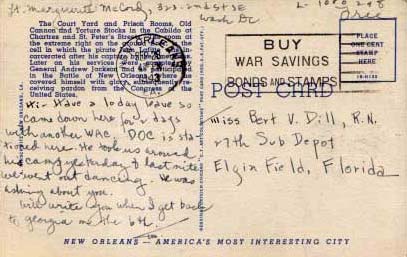 Lt. Marguerite McCord, 322-2nd St SE
Wash Dc
The Court Yard and Prison Rooms, Old
Cannon and Torture Stocks in the Cabildo at
Chartres and St. Peter's Streets.
the extreme right on the ground
cell in which the pirate Jean Lafitte
carcerated after his capture by the
Later on his services were
General Andrew Jackson and
in the Battle of New Orleans
covered himself with glory, subsequently re-
ceiving pardon from the Congress
United States.
BUY
WAR SAVINGS
BONDS AND STAMPS
PLACE
ONE CENT
STAMP
HERE
POST CARD
Hi- Have a 10 day leave so
came down here four days
with another WAC. DOC is sta
tioned here. He took us around
his camp yesterday & last nite
we went out dancing. He was
asking about you.
Will write you when I get back
to georgia on the 6th.
Miss Bert V. Dill, R.N.
27th Sub Depot
Elgin Field, Florida
NEW ORLEANS — AMERICA'S MOST INTERESTING CITY